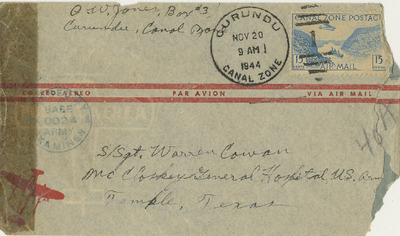 O. W. Jones, Box #3
Curundu, Canal Zone
CURUNDU
NOV 20
9 AM
1944
CANAL ZONE
CANAL ZONE POSTAGE
15 15
AIR MAIL
CORREO AEREO PAR AVION VIA AIR MAIL
BASE
0034
ARMY
EXAMINER
S/Sgt. Warren Cowan
McCloskey General Hospital U.S. Army
Temple, Texas